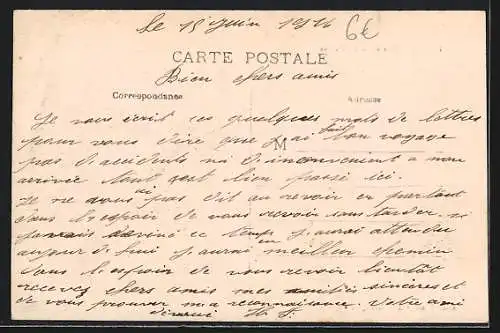 le 15 Juin 1926
6€
CARTE POSTALE
Bien chers amis
Correspondance
Adresse
Je vous écrit ces quelques mots de lettres
pour vous dire que j'ai fait bon voyage
M
pas d'accidents ni d'inconvenient a mon
arrivée tout sest bien passé ici.
Je ne vous ai pas dit au revoir en partant
dans l'espoir de vous revoir sans tarder. si
javais deviné ce temps j'aurai attendu
aujour d'hui j'aurai eu meilleur chemin
Dans l'espoir de vous revoir bientôt
recevez chers amis mes amitiés sincères et
de vous prouver ma reconnaissance. Votre ami